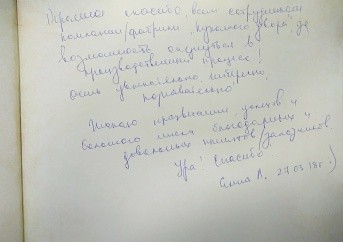 Огромное спасибо всем сотрудникам
компании/фабрики "Кухонный двор" за
возможность окунуться в
производственный процесс!
Очень увлекательно, интересно,
познавательно
Желаю процветания, успехов и
большого числа благодарных и
довольных клиентов/заказчиков.
Ура! Спасибо!
Елена А. 27.03.19г.)